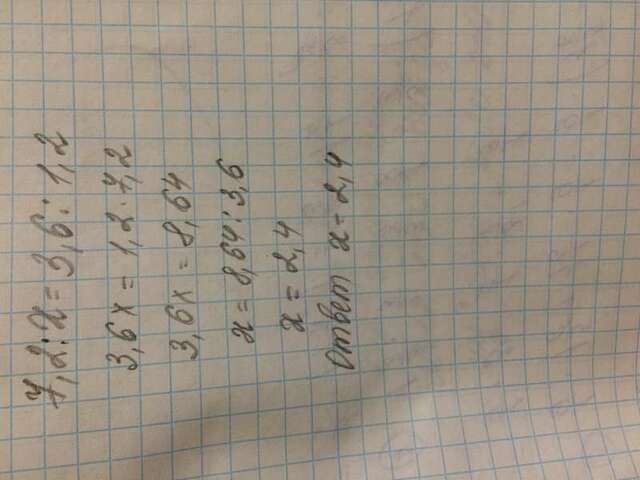 7,2:x=3,6:1,2
3,6x=1,2·7,2
3,6x=8,64
x=8,64:3,6
x=2,4
Ответ x-2,4